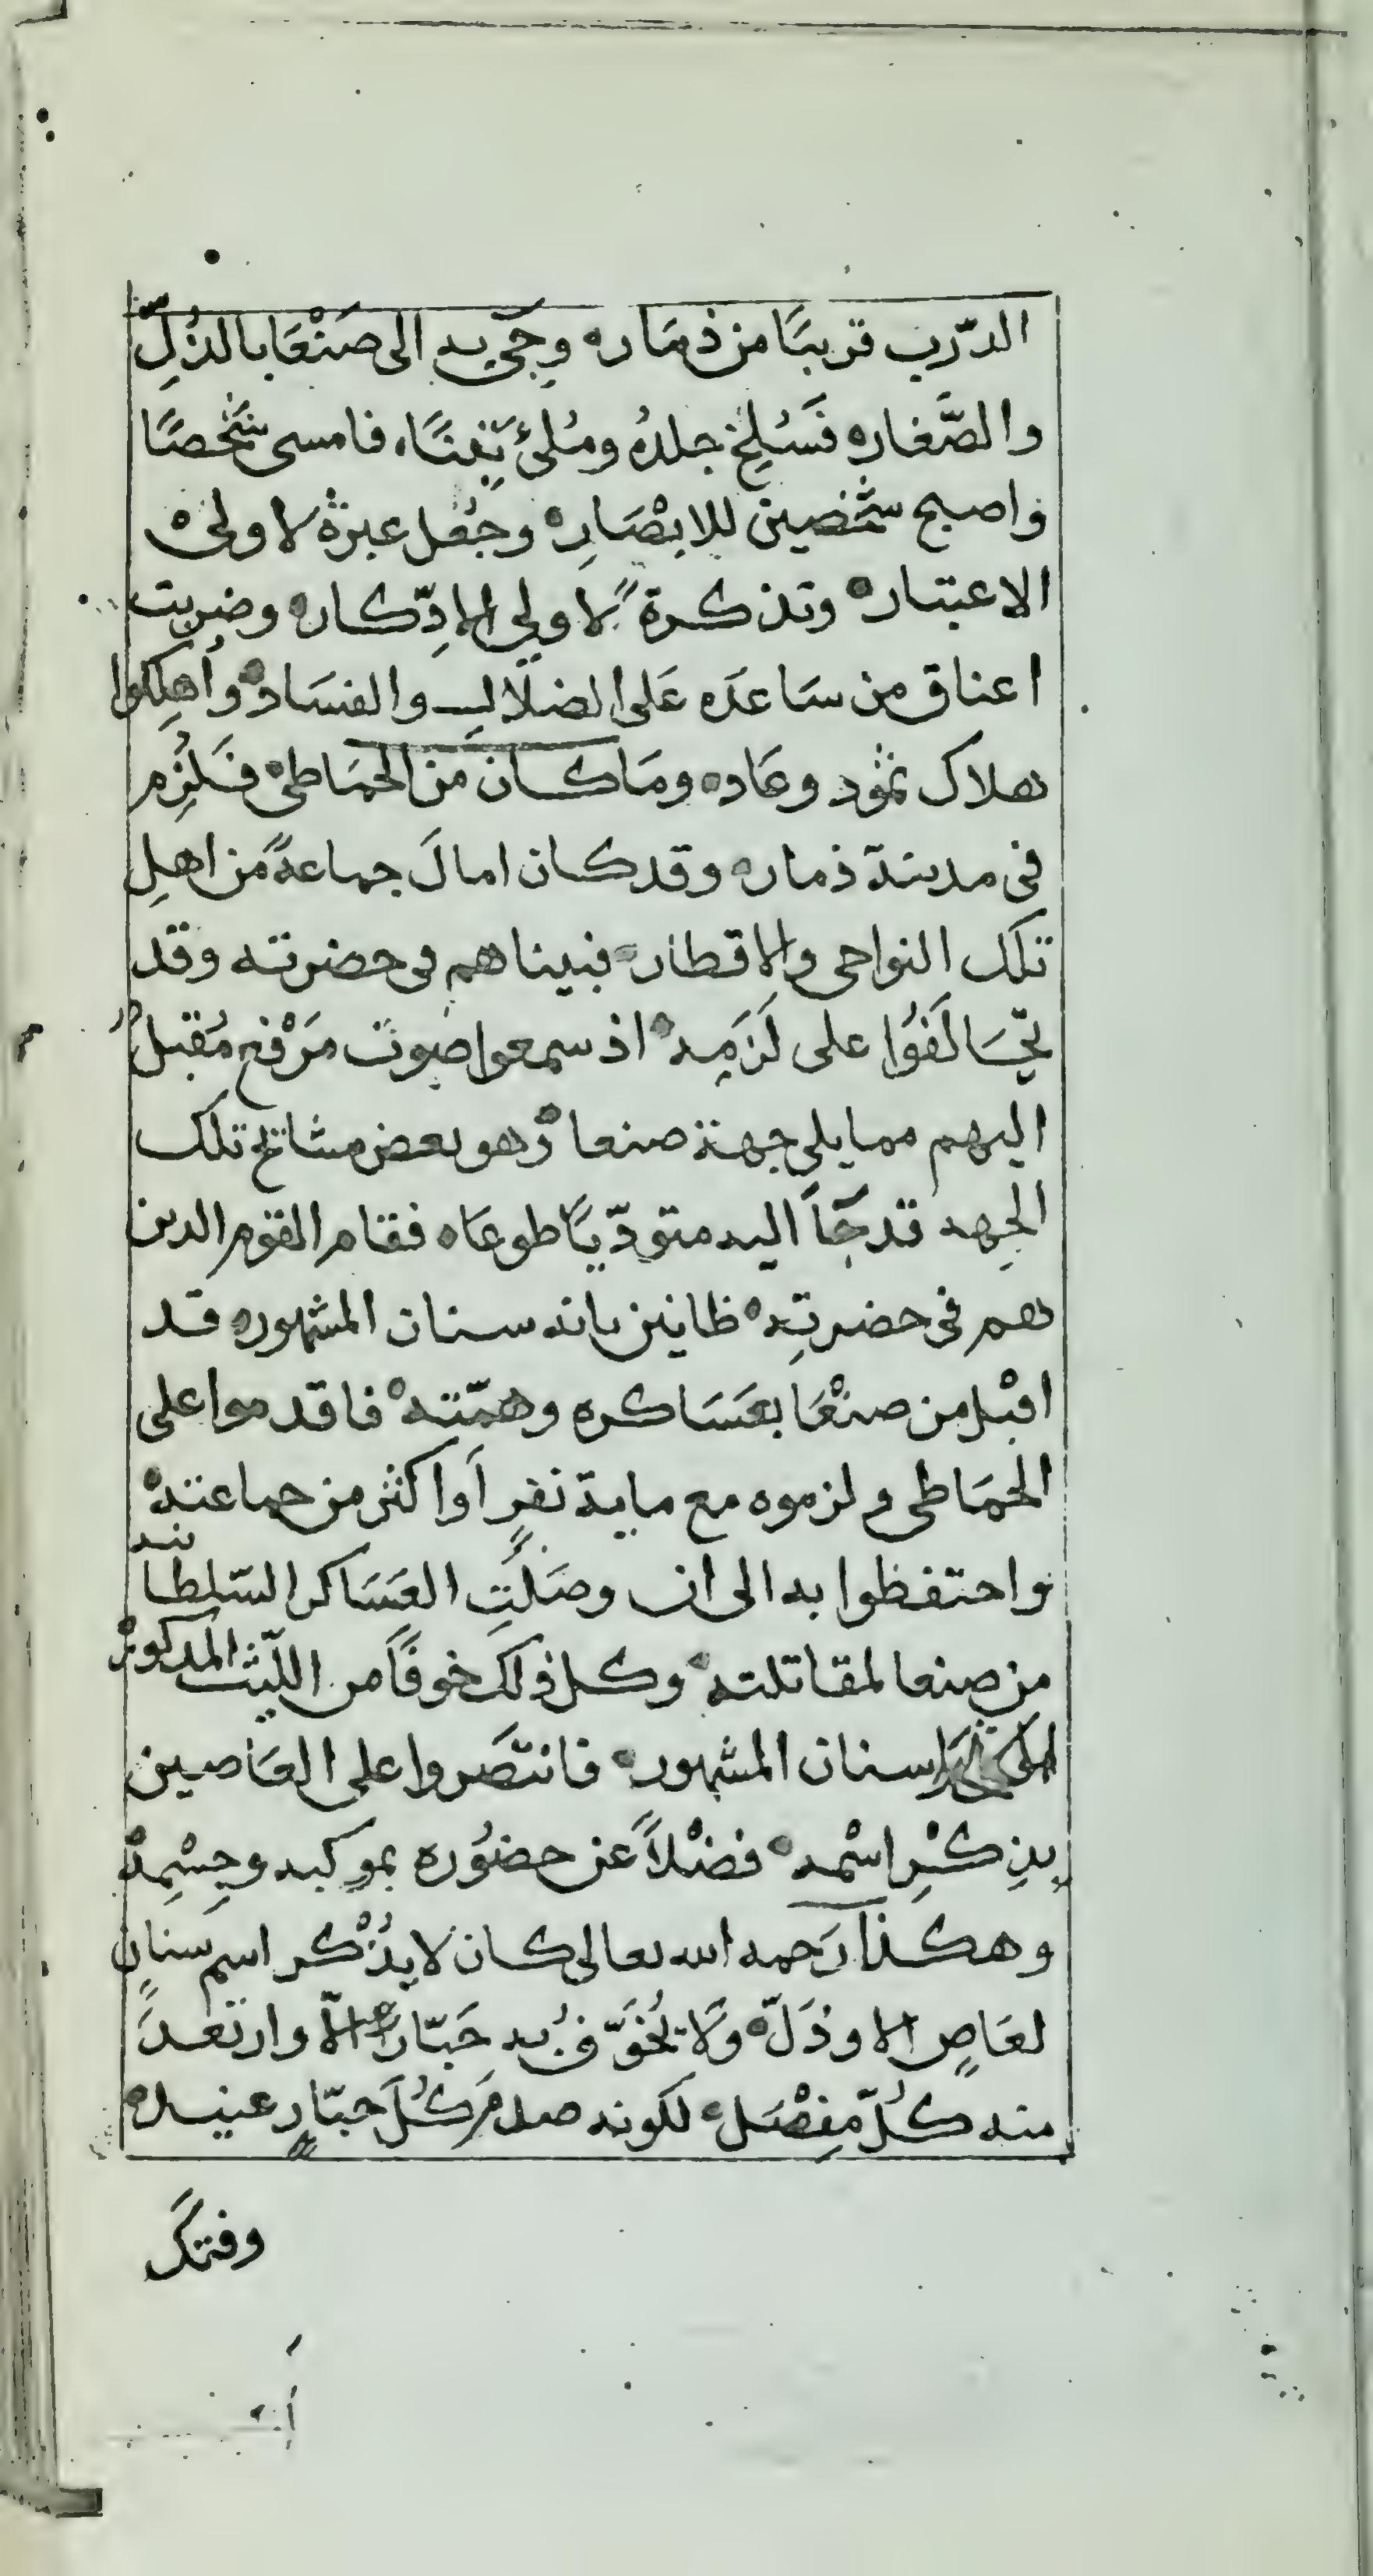 الدّرب قريبًا من ذمَار ه وجَي به الى صَنْعَا بالذُلِّ
والصَّغار ه فَسُلِخ جلدُه ومُلئ تِبْنًا ه فامسى شَخصًا
واصبح شخصين للابْصَارِ ه وجُعُل عبرةً لاولى
الاعتبار ه وتذكرةً لاولى الادِّكار ه وضربت
اعناق من سَاعدَه عَلى الضلَال والفسَاد ه وأهلِكوا
هلاك ثمُود وعَاد ه ومَا كان مَن الحمَاطى ه فَلُزِم
فى مدينة ذمار ه وقد كان امالَ جماعةً من اهلِ
تلك النواحى والاقطار ه فبينا هم فى حضرته وقد
تحَالَفُوا على لَزَمِه ه اذ سمعوا صوت مَرْفعٍ مُقبلٍ
اليهم مما يلي جهة صنعا ه وهو بعض مشائخ تلك
الجِهه قد جَا اليه متودّيًا طوعًا ه فقام القوم الدين
هم فى حضرتِه ه ظانين بانه سنان المشهور ه قد
اقبْل من صنْعَا بعَسَاكره وهمّته ه فاقدموا على
الحمَاطى ولزموه مع ماية نفرٍ اَو اكثر من جماعته ه
واحتفظوا به الى ان وصَلَتِ العَسَاكر السّلطانيه
من صنعا لمقاتلته ه وكل ذلك خوفًا من اللّيث المدكور
سنان المشهور ه فانتَصَروا على العَاصين
بِذِكْرِ اسْمه ه فضْلاً عن حضُوره بموكبه وجِسْمِه ه
وهكذا رَحمه الله تعالى كان لا يذْكر اسم سنانٍ
لعَاصٍ الا وذَلّ ه ولَا يُخَوَّفُ به جَبّارٌ الّا وارتعدَ
منه كُلّ مفِصْل ه لكونه صدمَ كُلَ جبّارٍ عنيد ه
وفتكَ